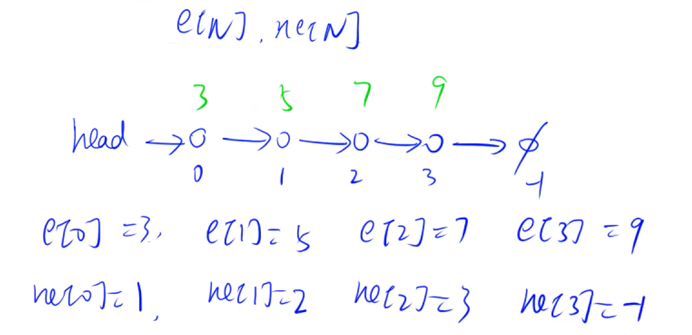 e[N], ne[N]
3 5 7 9
head → o → o → o → o → ∅
0 1 2 3 -1
e[0]=3, e[1]=5 e[2]=7 e[3]=9
ne[0]=1, ne[1]=2 ne[2]=3 ne[3]=-1